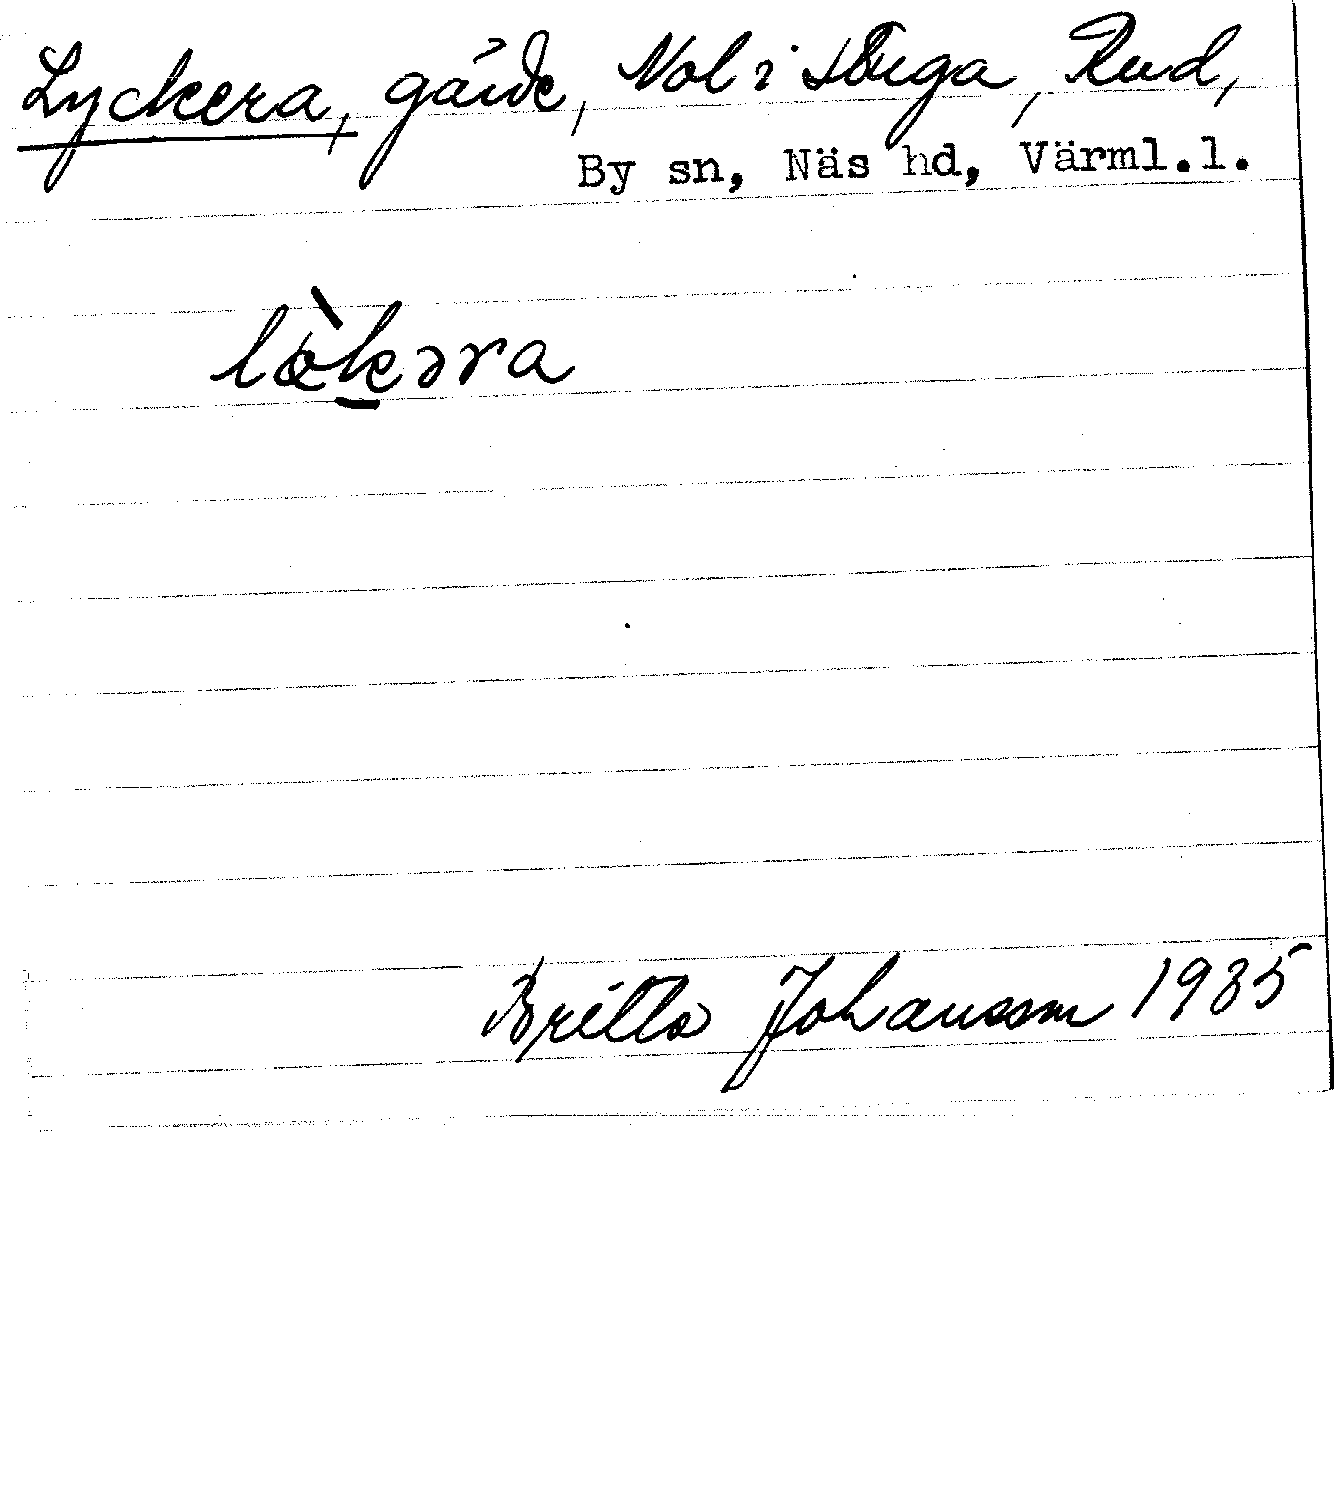 Lyckera, gärde, Nol i stuga, Rud,
By sn, Näs hd, Värml.l.
lökəra
Britta Johansson 1935